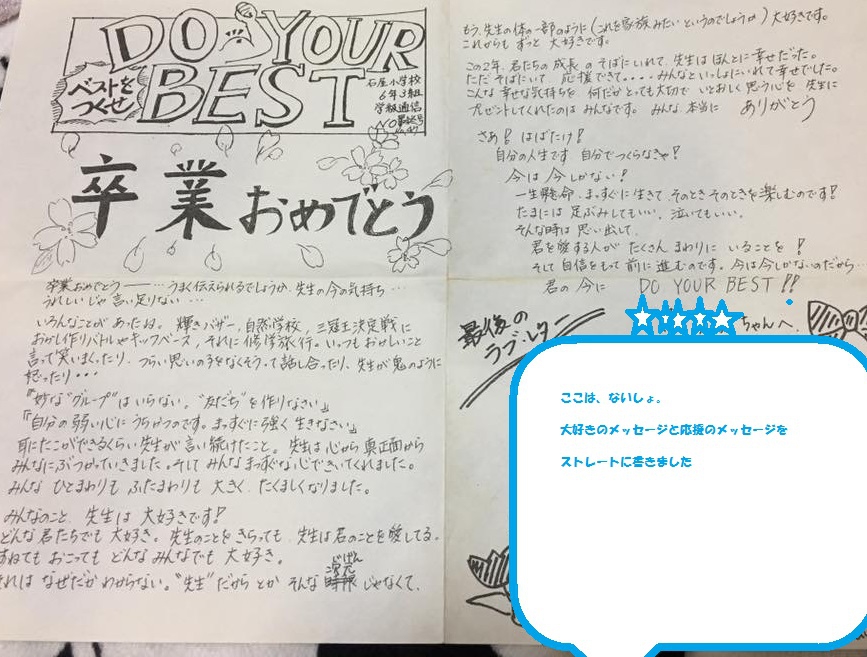 DO YOUR
BEST
ベストを
つくせ
石屋小学校
6年3組
学級通信
NO最終号
卒業おめでとう
卒業おめでとう――…うまく伝えられるでしょうか、先生の今の気持ち…
うれしいじゃ 言い足りない …
いろんなことが あったね。 輝きバザー、自然学校、三冠王決定戦に
おかし作りバトルやキックベース、それに修学旅行。いつも おかしいこと
言って笑いまくったり、つらい思いの子をなくそうって話し合ったり、先生が鬼のように
怒ったり・・・
『"妙な"グループ"はいらない。"友だち"を作りなさい』
『自分の弱い心に うちかつのです。まっすぐに強く 生きなさい』
耳にたこができるくらい先生が言い続けたこと。 先生は心から 真正面から
みんなにぶつかっていきました。そして みんなまっすぐな心できいてくれました。
みんな ひとまわりも ふたまわりも 大きく、たくましくなりました。
みんなのこと、先生は 大好きです!
どんな君たちでも 大好き。先生のことを きらっても、先生は君のことを愛してる。
すねても おこっても どんなみんなでも 大好き。
それは なぜだか わからない。"先生"だから とか そんな 次元 じげん じゃなくて、
もう、先生の体の一部のように(これを家族みたいというのでしょうか)大好きです。
これからも ずっと 大好きです。
この2年、君たちの成長 のそばにいれて、先生は ほんとに幸せだった。
ただ そばにいて 応援できて・・・・みんなといっしょにいれて幸せでした。
こんな 幸せな気持ちを、何だか とっても大切で いとおしく 思う心を 先生に
プレゼントしてくれたのは みんなです。 みんな、本当に ありがとう
さあ! はばたけ!
自分の人生です 自分でつくらなきゃ!
今は 今しかない!
一生懸命、まっすぐに生きて、そのときそのときを楽しむのです!
たまには 足ぶみしてもいい、泣いてもいい。
そんな時は 思い出して、
君を愛する人が たくさん まわりに いることを !
そして 自信をもって 前に進むのです。今は今しかないのだから…
君の 今に DO YOUR BEST!!
最後の
ラブ・レター
ちゃんへ、
ここは、ないしょ。
大好きのメッセージと応援のメッセージを
ストレートに書きました